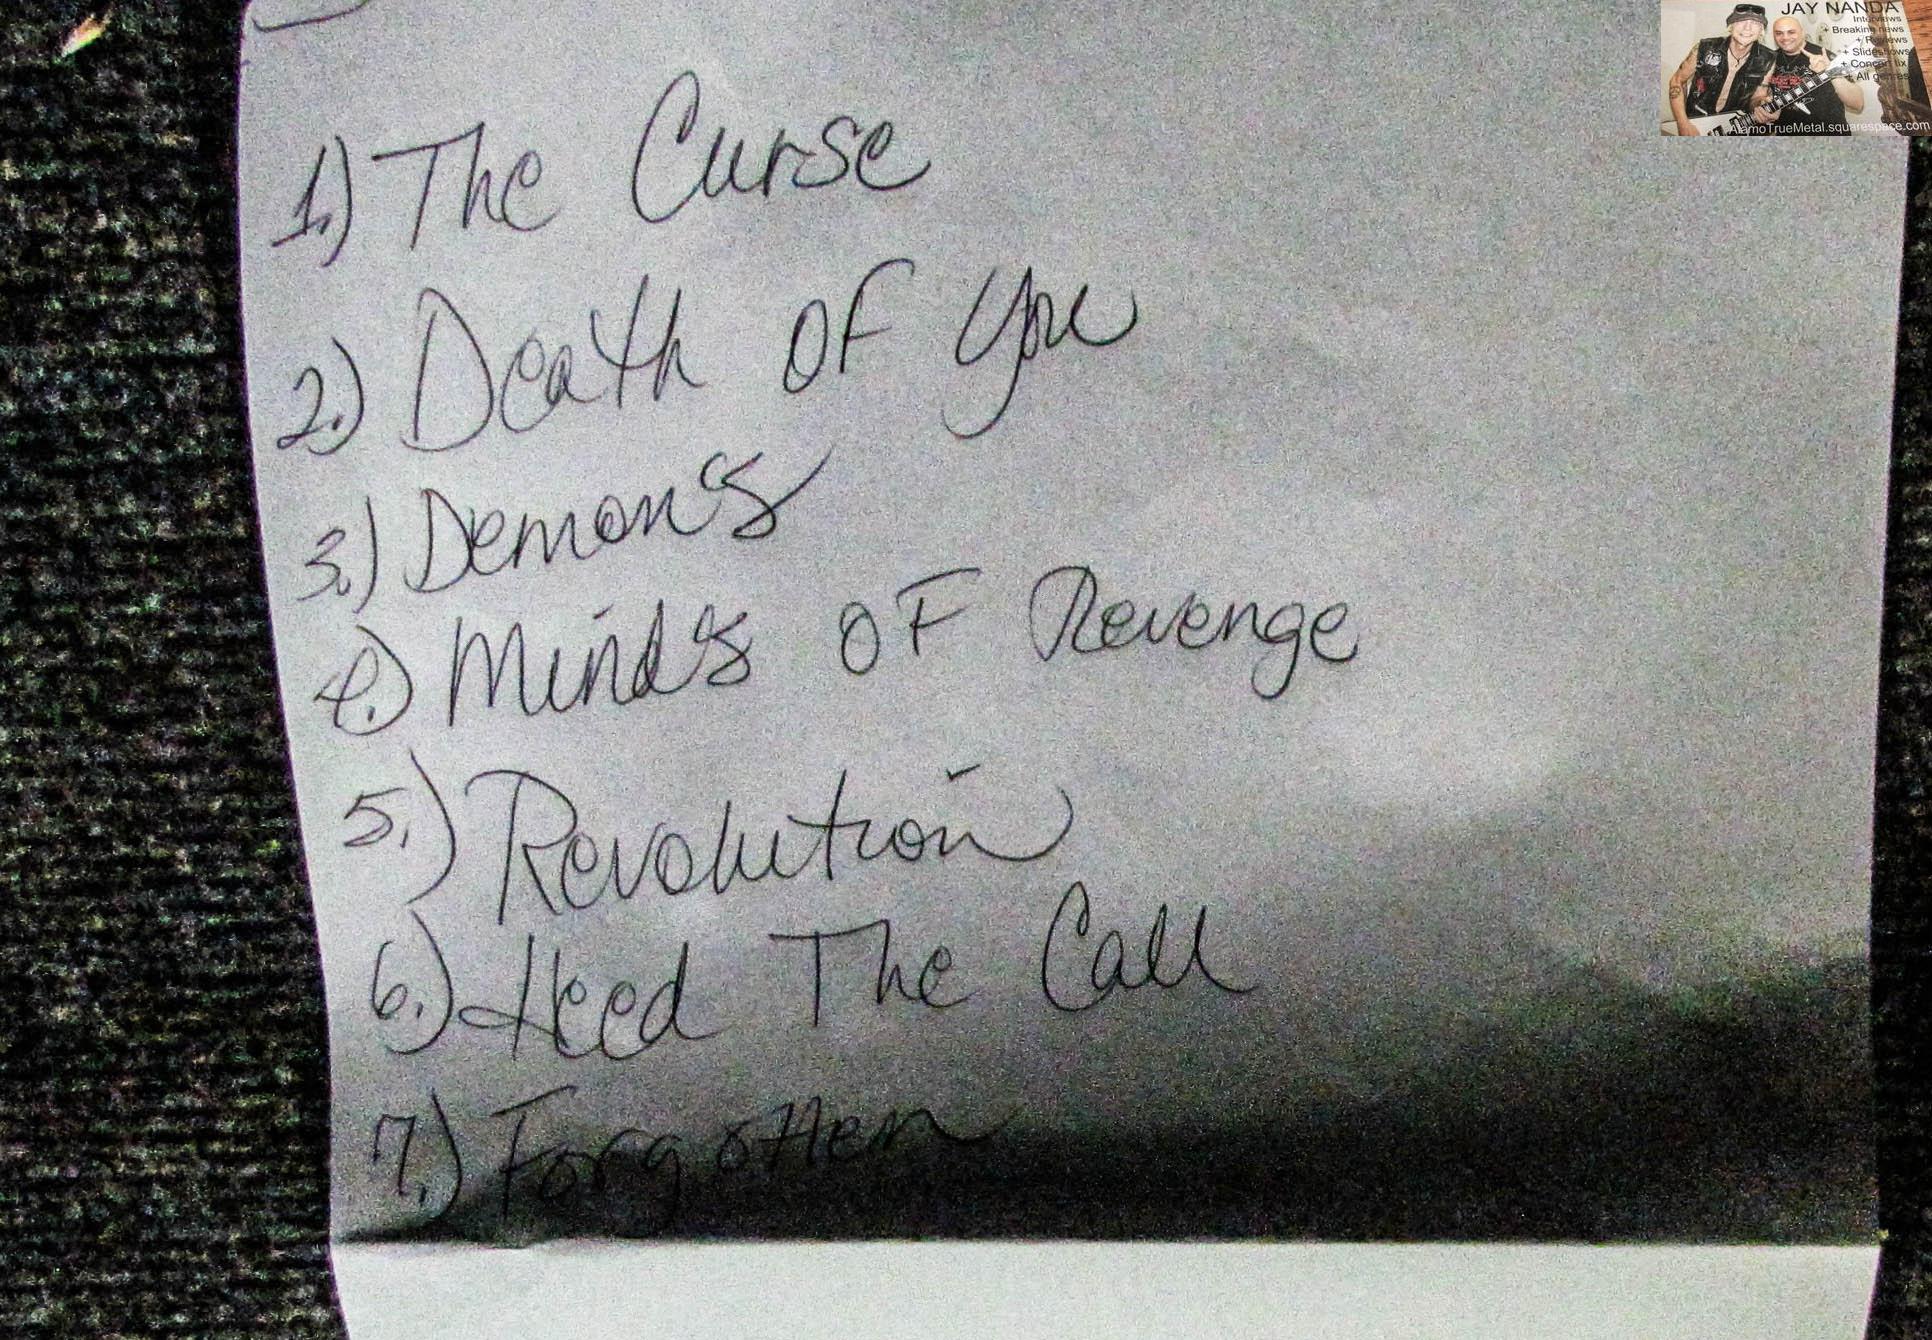 JAY NANDA
Interviews
+ Breaking news
+ Reviews
+ Slideshows
+ Concert tix
+ All genres
AlamoTrueMetal.squarespace.com
1.) The Curse
2.) Death of You
3.) Demons
4.) Minds of Revenge
5.) Revolution
6.) Heed The Call
7.) Forgotten